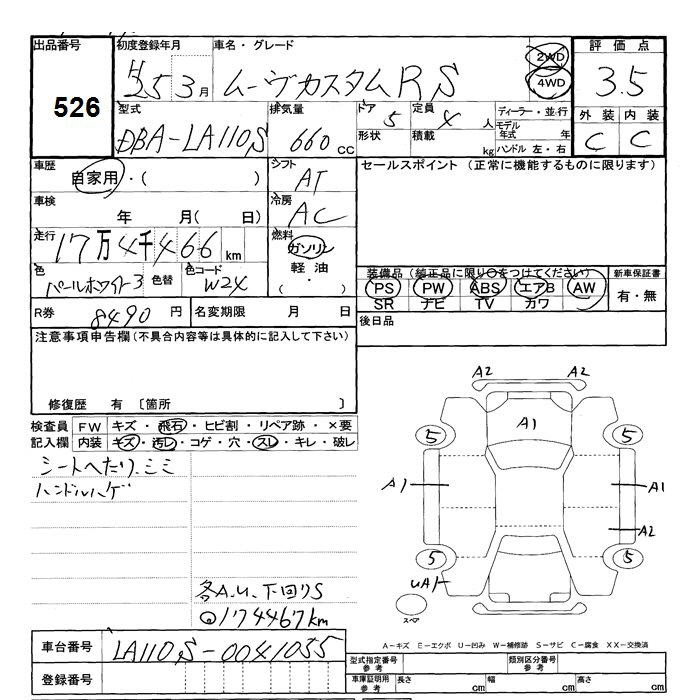 出品番号 初度登録年月 車名・グレード 2WD 評価点
526 H25 3月 ムーヴカスタムRS 4WD 3.5
型式 排気量 ドア 5 定員 4人 ディーラー・並行 外装 内装
DBA-LA110S 660cc 形状 積載 kg モデル年式 年 C C
ハンドル 左・右
車歴 シフト セールスポイント (正常に機能するものに限ります)
自家用・( ) AT
車検 冷房
年 月(日) AC
走行 燃料
17万4千466km ガソリン
色 色替 色コード 軽油・
パールホワイト3 W24 ( )
装備品 (純正品に限り○をつけてください) 新車保証書
PS PW ABS エアB AW 有・無
SR ナビ TV カワ
R券 8490円 名変期限 月 日 後日品
注意事項申告欄(不具合内容等は具体的に記入して下さい)
修復歴 有 〔箇所 〕
検査員 FW キズ・飛石・ヒビ割・リペア跡・×要
記入欄 内装 キズ・汚レ・コゲ・穴・スレ・キレ・破レ
シートへたり、ミミ
ハンドルハゲ
各A.U.下回りS
174467km
A2 A2
A1
5 5
A1 A1
A2
5 5
UA1
スペア
A-キズ E-エクボ U-凹み W-補修跡 S-サビ C-腐食 XX-交換済
車台番号 LA110S-0041055
登録番号
型式指定番号 参考 類別区分番号 参考
車庫証明用 参考 長さ cm 幅 cm 高さ cm